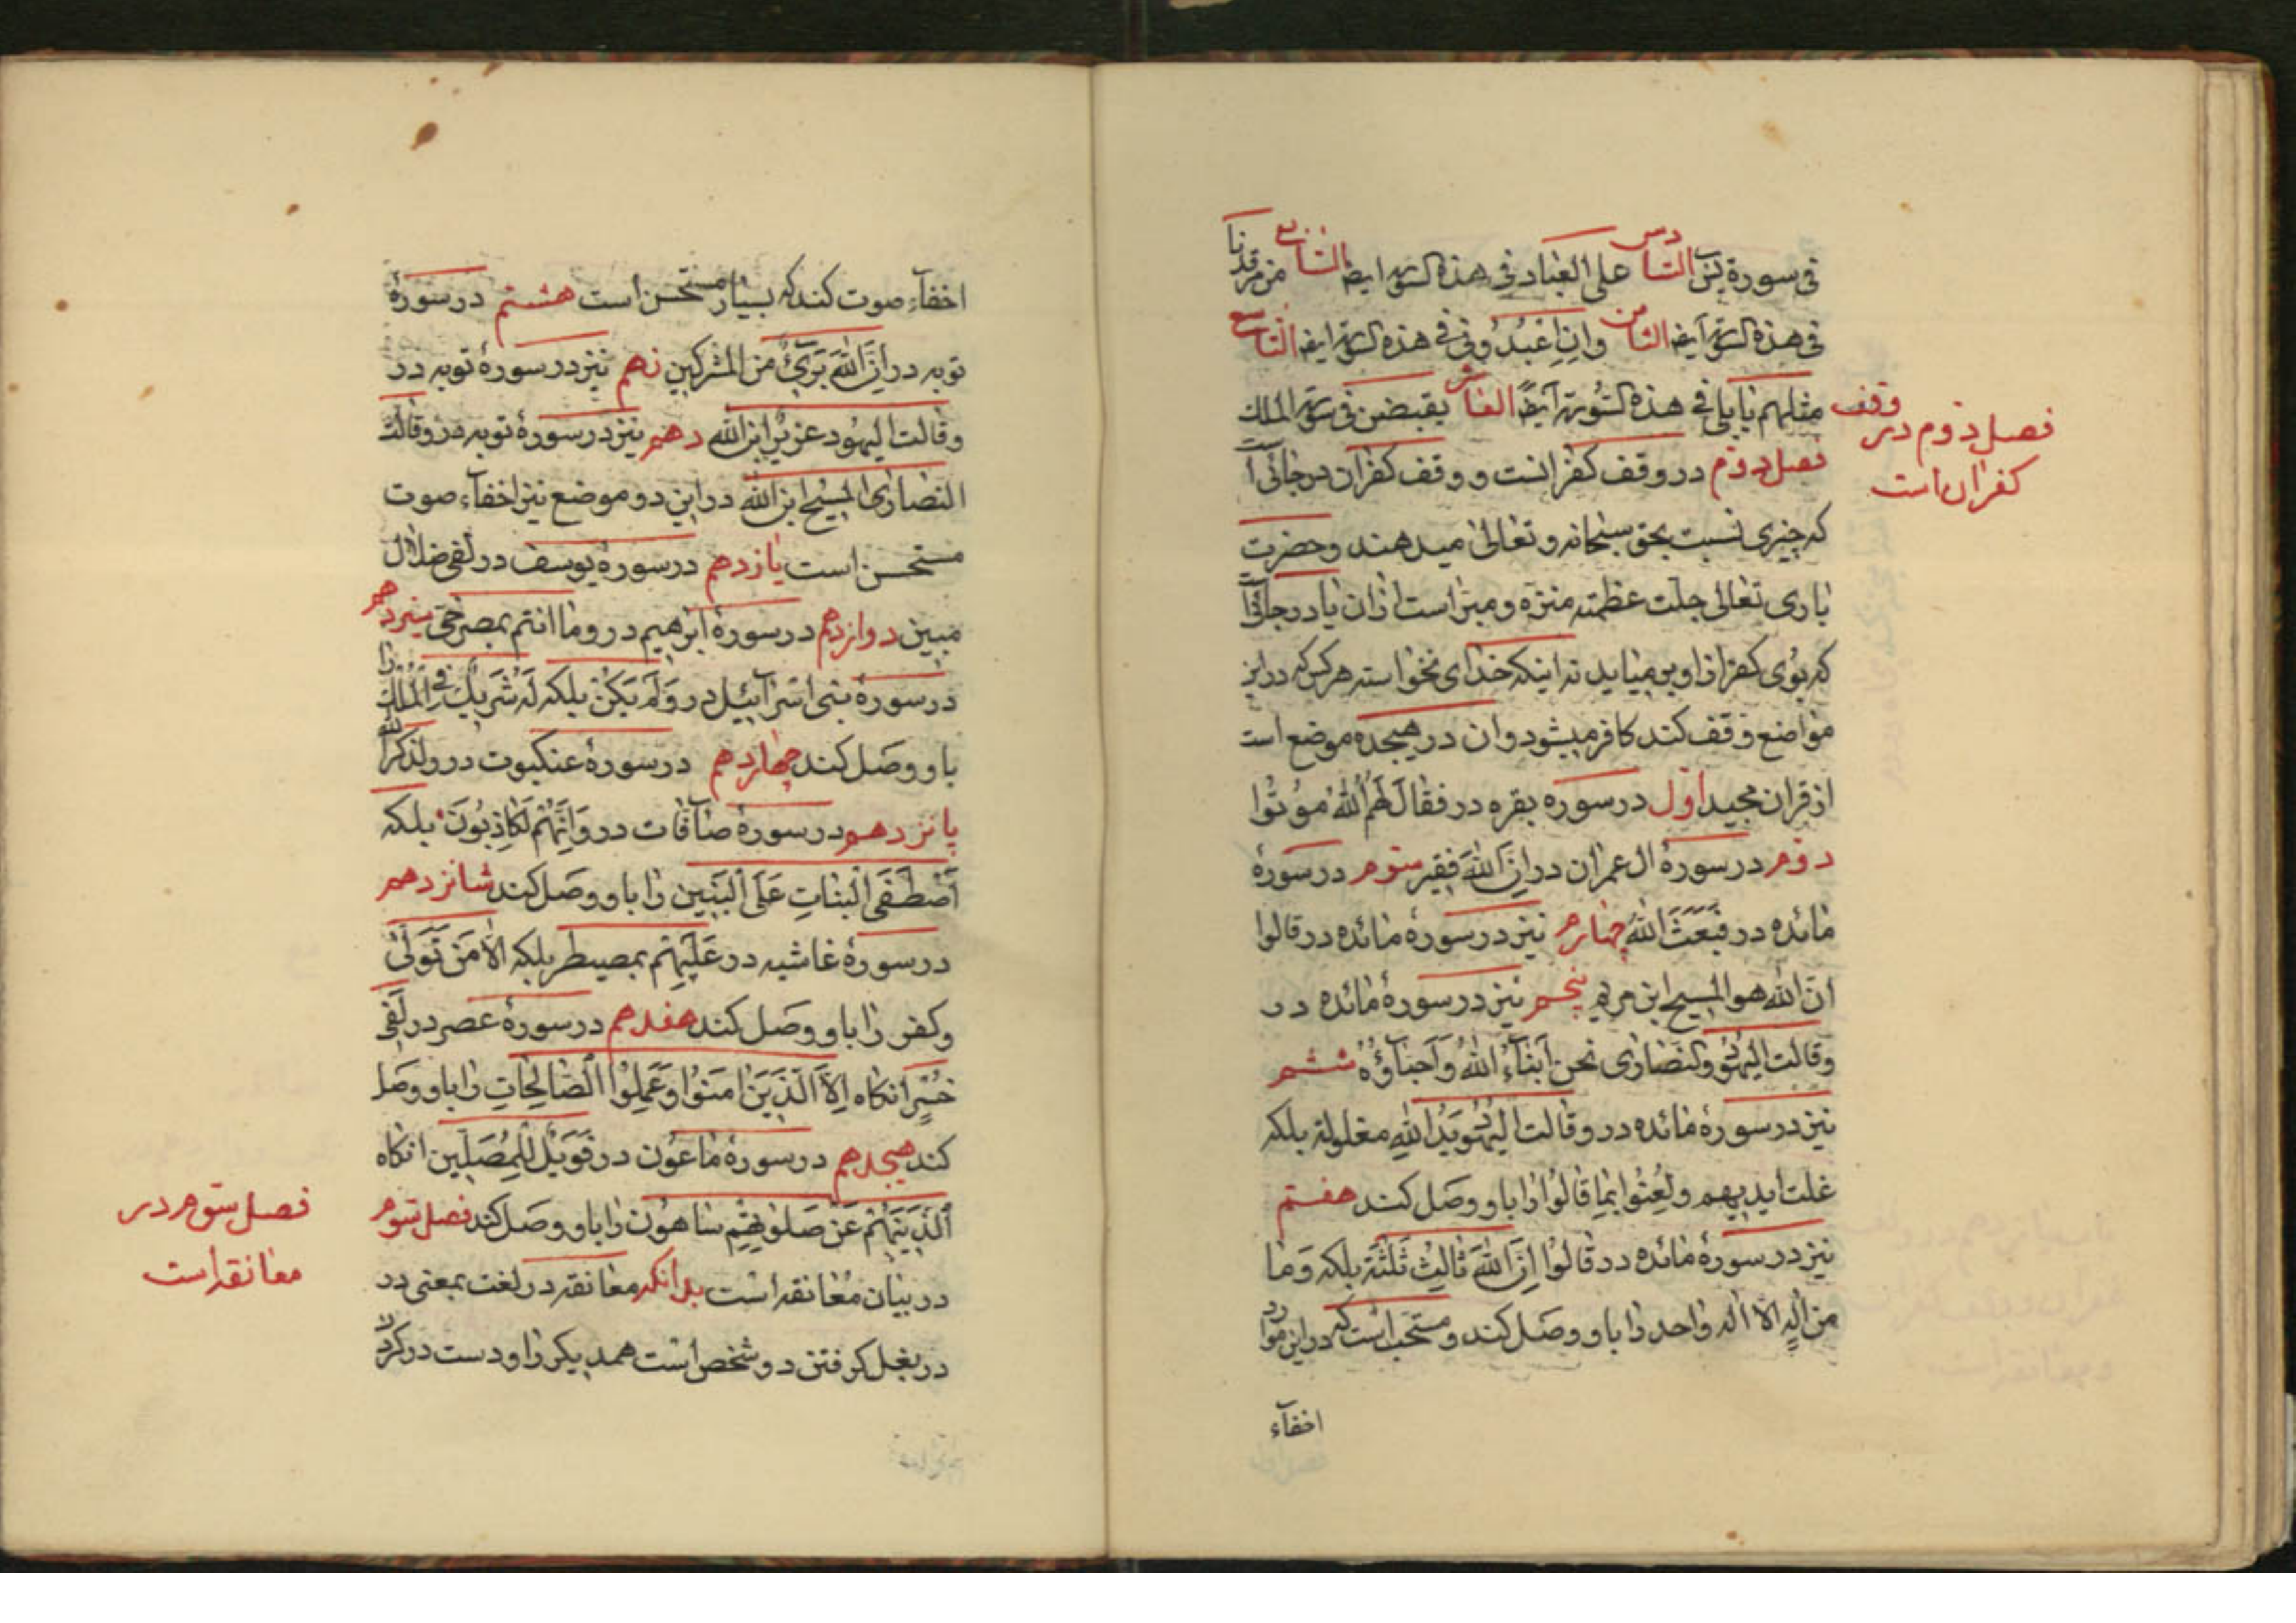 فی سورة یس السادس علی العباد فی هذه السورة ایضا السابع من مرقدنا
فی هذه السورة ایضا الثامن وان اعبدونی فی هذه السورة ایضا التاسع
مثلهم یا بلی فی هذه السورة ایضاً العاشر یقبضن فی سورة الملک
فصل دوم در وقف کفرانست و وقف کفران در جائی است
که چیزی نسبت بحق سبحانه و تعالی میدهند و حضرت
باری تعالی جلت عظمته منزه و مبرا است از ان یا در جائی است
که بوی کفر از او بر میاید نه اینکه خدای نخواسته هر کس که در این
مواضع وقف کند کافر میشود و ان در هیجده موضع است
از قران مجید اول در سوره بقره در فقال لَهُمُ اللّٰهُ مُوتُوا
دوم در سورهٔ ال عمران در اِنَّ اللّٰهَ فقیر سوم در سورهٔ
مائده در فَبَعَثَ اللّٰهُ چهارم نیز در سورهٔ مائده در قالوا
انّ اللّٰه هو المسیح ابن مریم پنجم نیز در سورهٔ مائده در
وقالت الیهود والنصاری نحن اَبناءُ اللّٰهُ وَاَحباؤُهُ ششم
نیز در سورهٔ مائده در وقالت الیهُودُ یَدُ اللّٰهِ مغلولة بلکه
غلت ایدیهم ولُعِنُوا بِما قالُوا را باو وصل کنند هفتم
نیز در سورهٔ مائده در قالُوا اِنَّ اللّٰهَ ثالِثُ ثَلٰثَة بلکه وَما
من اِلٰهٍ اِلّا اله واحد را باو وصل کنند و مستحب است که در این موارد
اخفآء
فصل دوم در وقف
کفران است
اخفآء صوت کند که بسیار مستحسن است هشتم در سورهٔ
توبه در اَنَّ اللّٰهَ بَرَیٌٔ من المشرکین نهم نیز در سورهٔ توبه در
وقالت الیهُود عزیرٌ ابن اللّٰه دهم نیز در سورهٔ توبه در وقالت
النصاری المسیح ابن اللّٰه در این دو موضع نیز اخفآء صوت
مستحسن است یازدهم در سورهٔ یوسف در لفی ضلال
مبین دوازدهم در سورهٔ ابرهیم در وما انتم بمصرخیّ سیزدهم
در سورهٔ بنی اسرآئیل در وَلَم یَکُنْ بلکه لَهُ شَریكٌ فی المُلك را
باو وصل کند چهاردهم در سورهٔ عنکبوت در ولذکر اللّٰه
پانزدهم در سورهٔ صآفات در وَاِنَّهُم لَکاذِبُونَ بلکه
اَصْطَفَی الْبَناتِ عَلَی الْبَنین را باو وصل کند شانزدهم
در سورهٔ غاشیه در عَلَیهِم بمصیطر بلکه الّا مَن تَوَلّیٰ
و کفر را باو وصل کنند هفدهم در سورهٔ عصر در لَفی
خُسْرٍ انکاه اِلّاَ الَّذینَ امَنُوا وَعَمِلُوا الصّالِحاتِ را باو وصل
کند هیجدهم در سورهٔ ماعون در فَوَیلٌ لِلمُصَلّین انکاه
اَلَّذینَ هُم عَن صَلوٰتِهِم ساهُون را باو وصل کند فصل سوم
در بیان مُعانقه است بدانکه معانقه در لغت بمعنی در
در بغل کرفتن دو شخص است همدیکر را و دست در کردن
فصل سوم در
معانقه است